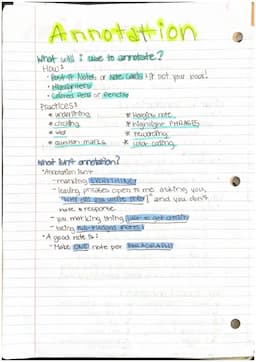 Annotation
What will i use to annotate?
How:
- Post-it Notes or Note Cards if not your book!
- Highlighters
- Colored Pens or Pencils
Practices:
* underlining * Margin note
* circling * Highlighting PHRASES
* star * rewording
* question marks * color coding
What isn't annotation?
- Annotation Isn't
- marking EVERYTHING
- leaving phrases open to me asking you,
"Why did you write this?" and you don't
have a response.
- you marking thing just to get credit
- being
- A good note is:
- Make ONE note per PARAGRAPH